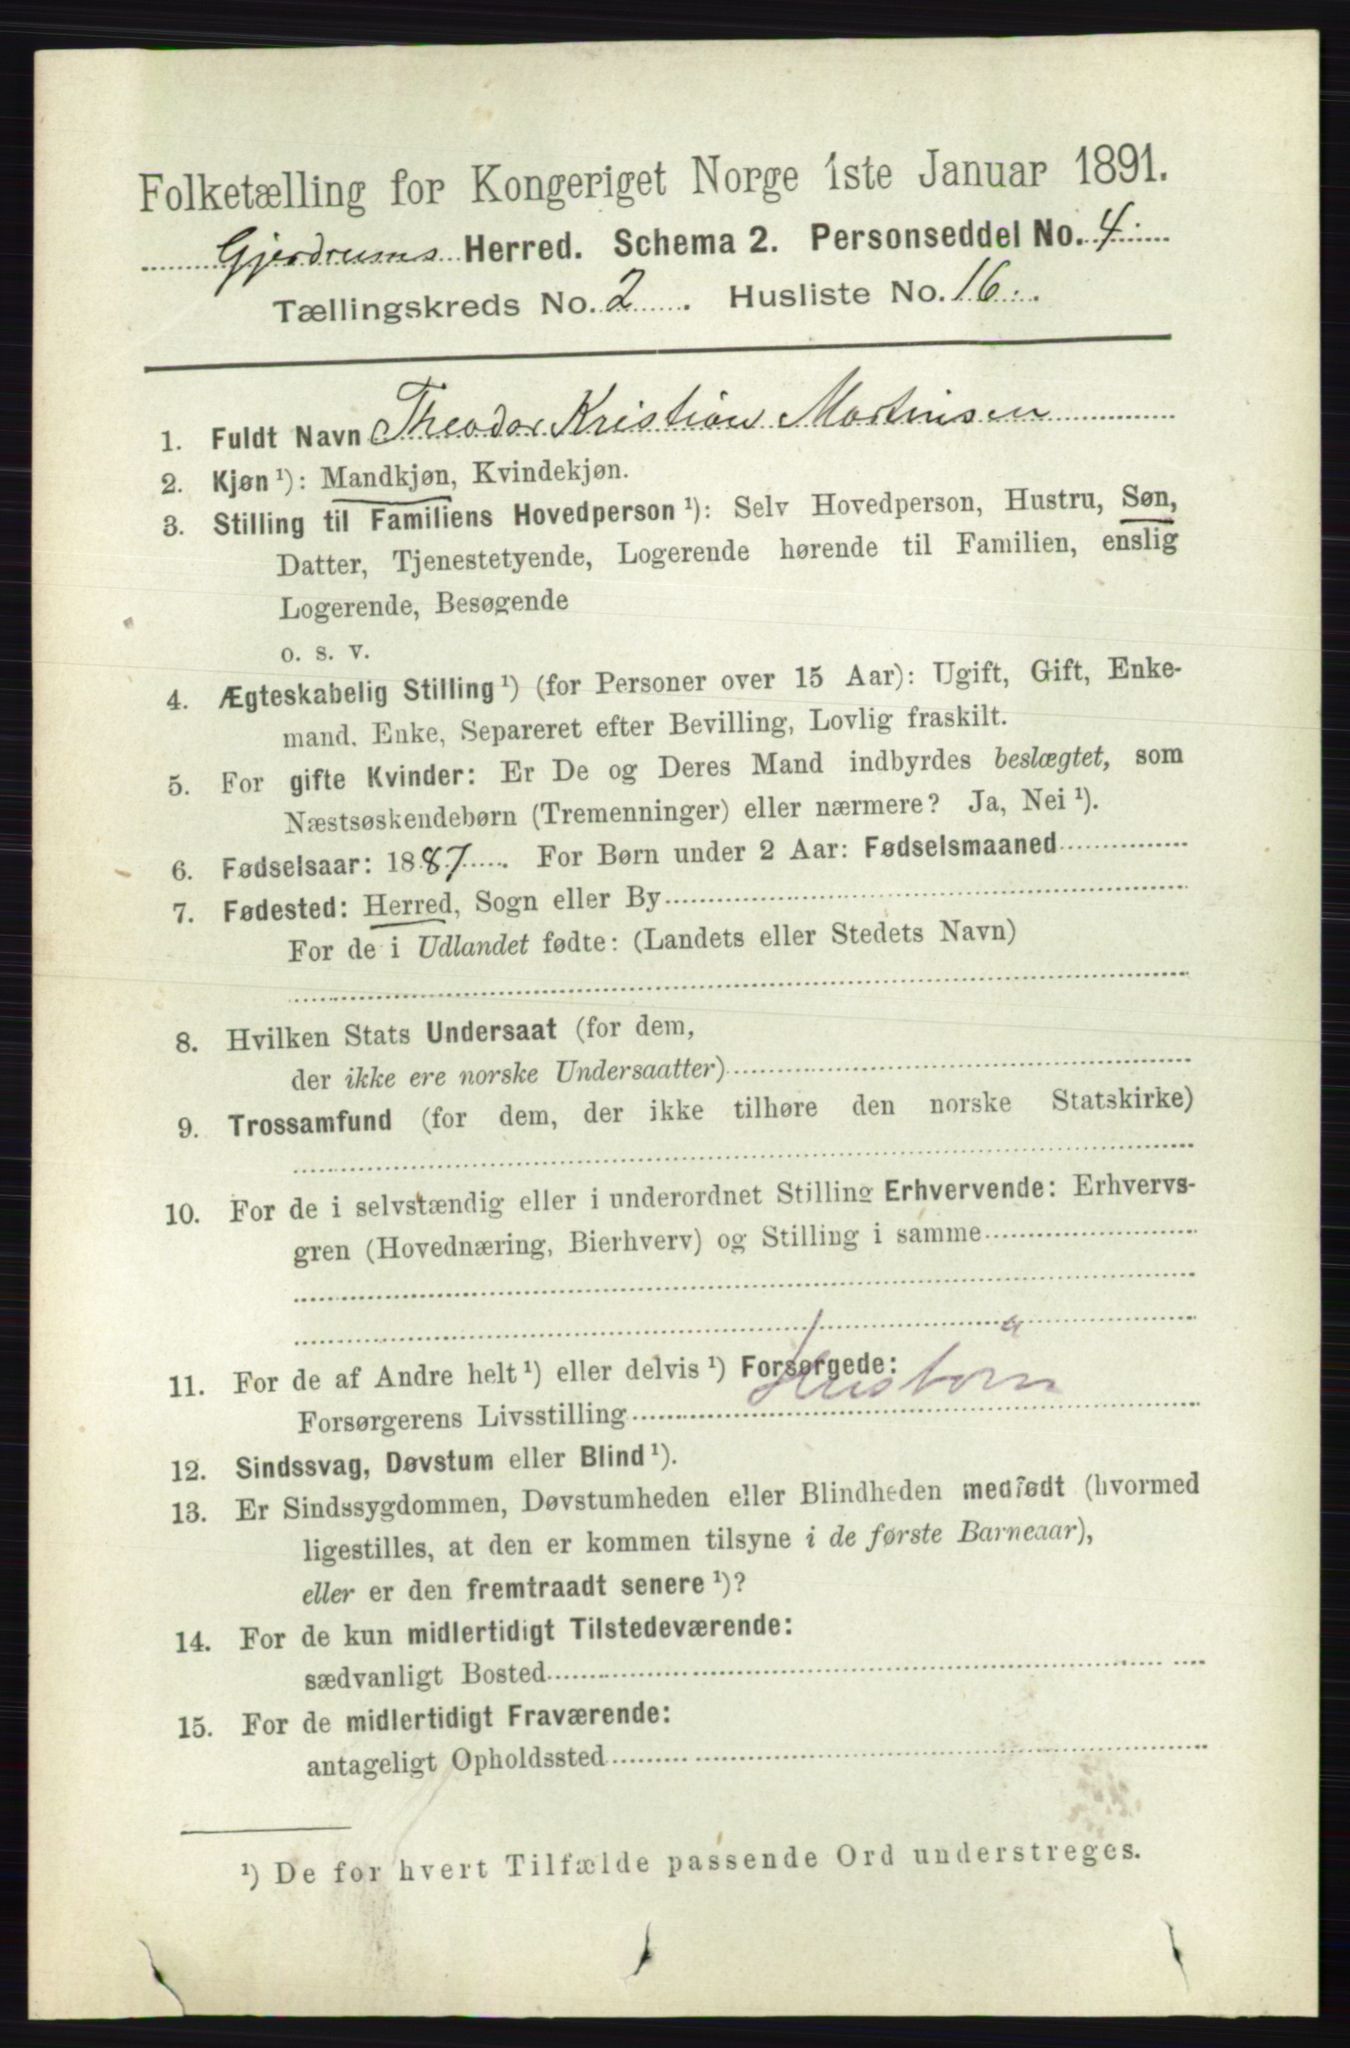 Folketælling for Kongeriget Norge 1ste Januar 1891.
Gjerdrums Herred. Schema 2. Personseddel No. 4.
Tællingskreds No. 2. Husliste No. 16.
1. Fuldt Navn Theodor Kristian Martinsen
2. Kjøn ¹): Mandkjøn, Kvindekjøn.
3. Stilling til Familiens Hovedperson ¹): Selv Hovedperson, Hustru, Søn,
Datter, Tjenestetyende, Logerende hørende til Familien, enslig
Logerende, Besøgende
o. s. v.
4. Ægteskabelig Stilling ¹) (for Personer over 15 Aar): Ugift, Gift, Enke-
mand. Enke, Separeret efter Bevilling, Lovlig fraskilt.
5. For gifte Kvinder: Er De og Deres Mand indbyrdes beslægtet, som
Næstsøskendebørn (Tremenninger) eller nærmere? Ja, Nei ¹).
6. Fødselsaar: 1887. For Børn under 2 Aar: Fødselsmaaned
7. Fødested: Herred, Sogn eller By
For de i Udlandet fødte: (Landets eller Stedets Navn)
8. Hvilken Stats Undersaat (for dem,
der ikke ere norske Undersaatter)
9. Trossamfund (for dem, der ikke tilhøre den norske Statskirke)
10. For de i selvstændig eller i underordnet Stilling Erhvervende: Erhvervs-
gren (Hovednæring, Bierhverv) og Stilling i samme
11. For de af Andre helt ¹) eller delvis ¹) Forsørgede:
Forsørgerens Livsstilling
12. Sindssvag, Døvstum eller Blind ¹).
13. Er Sindssygdommen, Døvstumheden eller Blindheden medfødt (hvormed
ligestilles, at den er kommen tilsyne i de første Barneaar),
eller er den fremtraadt senere ¹)?
14. For de kun midlertidigt Tilstedeværende:
sædvanligt Bosted
15. For de midlertidigt Fraværende:
antageligt Opholdssted
¹) De for hvert Tilfælde passende Ord understreges.